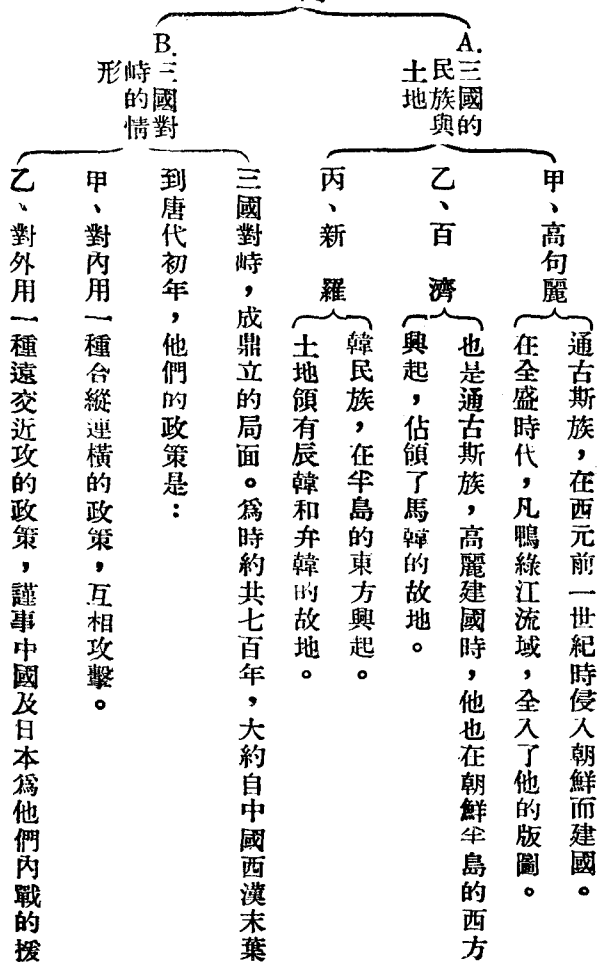 A.三國的
民族與
土地
甲、高句麗
通古斯族，在西元前一世紀時侵入朝鮮而建國。
在全盛時代，凡鴨綠江流域，全入了他的版圖。
乙、百濟
也是通古斯族，高麗建國時，他也在朝鮮半島的西方
興起，佔領了馬韓的故地。
丙、新羅
韓民族，在半島的東方興起。
土地領有辰韓和弁韓的故地。
B.三國對
峙的情
形
三國對峙，成鼎立的局面。爲時約共七百年，大約自中國西漢末葉
到唐代初年，他們的政策是：
甲、對內用一種合縱連橫的政策，互相攻擊。
乙、對外用一種遠交近攻的政策，謹事中國及日本爲他們內戰的援